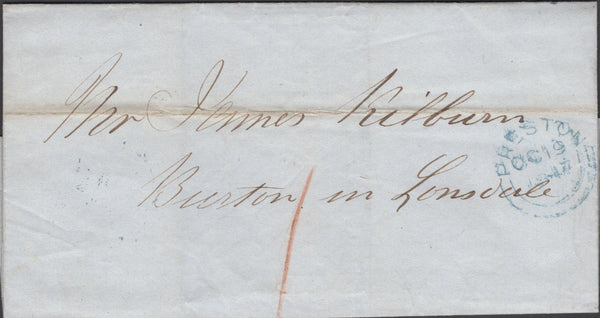 Mr James Kilburn
Burton in Lonsdale
PRESTON
OC 19
1847
1